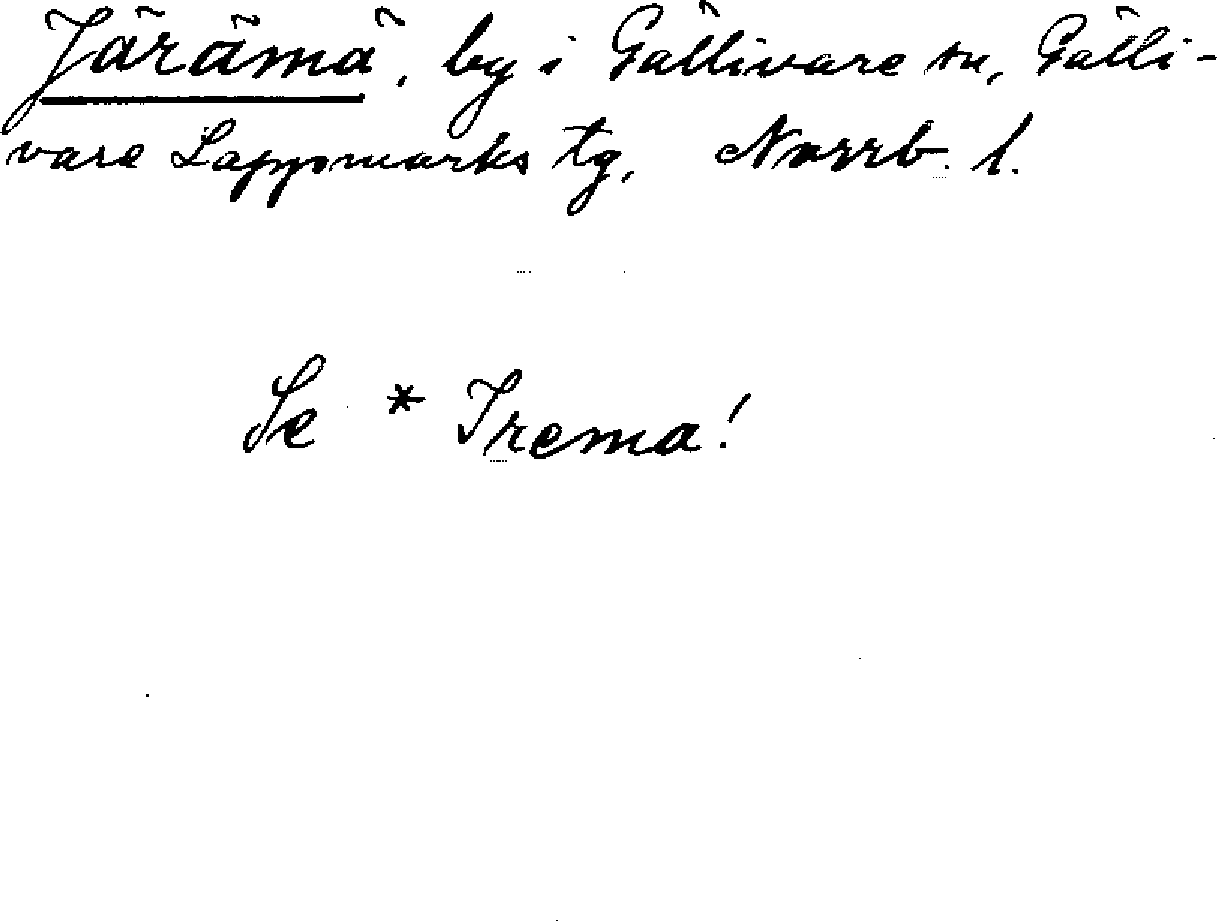 Järämä, by i Gällivare sn, Gälli-
vare Lappmarks tg, Norrb. l.
Se * Irema!